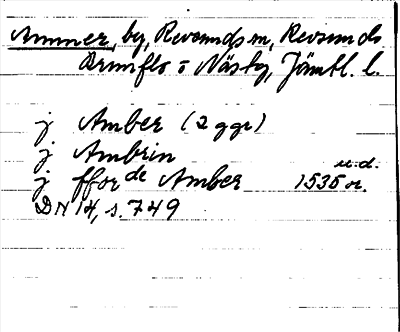 Ammer, by, Revsunds sn, Revsunds
Brunflo o Näsby, Jämtl. l.
j Amber (2 ggr)
j Ambrin
u.d.
j fforde Amber 1535 or.
DN 14, s. 749